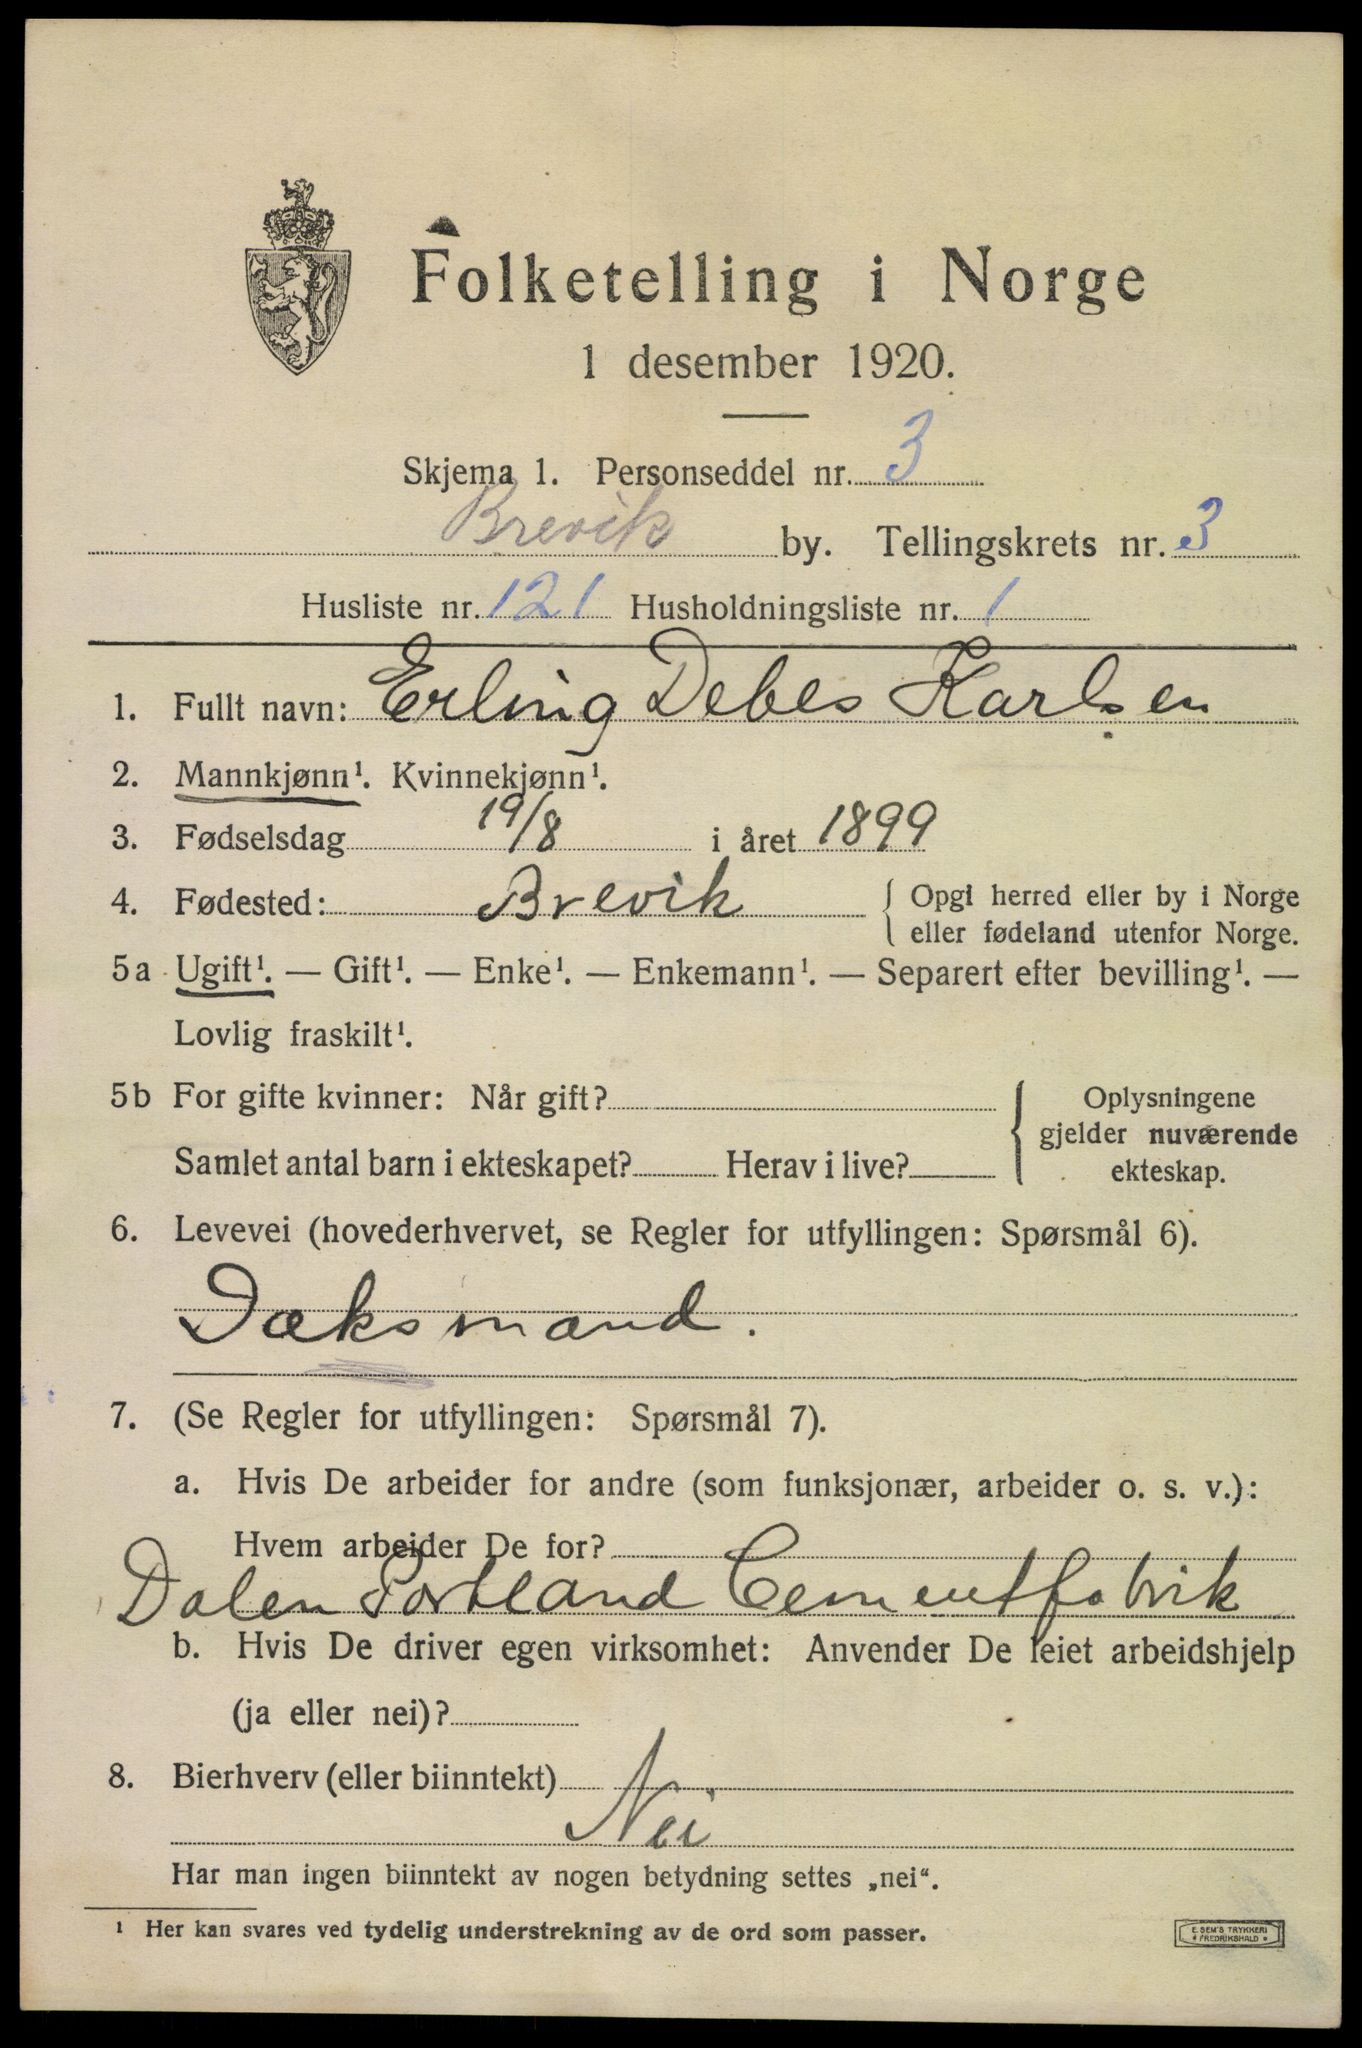 Folketelling i Norge
1 desember 1920.
Skjema 1. Personseddel nr. 3
Brevik by. Tellingskrets nr. 3
Husliste nr. 121 Husholdningsliste nr. 1
1. Fullt navn: Erling Debes Karlsen
2. Mannkjønn¹. Kvinnekjønn¹.
3. Fødselsdag 19/8 i året 1899
4. Fødested: Brevik { Opgi herred eller by i Norge
eller fødeland utenfor Norge.
5a Ugift¹. — Gift¹. — Enke¹. — Enkemann¹. — Separert efter bevilling¹. —
Lovlig fraskilt¹.
5b For gifte kvinner: Når gift? Oplysningene
gjelder nuværende
Samlet antal barn i ekteskapet? Herav i live? ekteskap.
6. Levevei (hovederhvervet, se Regler for utfyllingen: Spørsmål 6).
Dæksmand.
7. (Se Regler for utfyllingen: Spørsmål 7).
a. Hvis De arbeider for andre (som funksjonær, arbeider o. s. v.):
Hvem arbeider De for?
Dalen Portland Cementfabrik
b. Hvis De driver egen virksomhet: Anvender De leiet arbeidshjelp
(ja eller nei)?
8. Bierhverv (eller biinntekt)
Nei
Har man ingen biinntekt av nogen betydning settes „nei“.
¹ Her kan svares ved tydelig understrekning av de ord som passer.
E. SEM'S TRYKKERI
* FREDRIKSHALD *